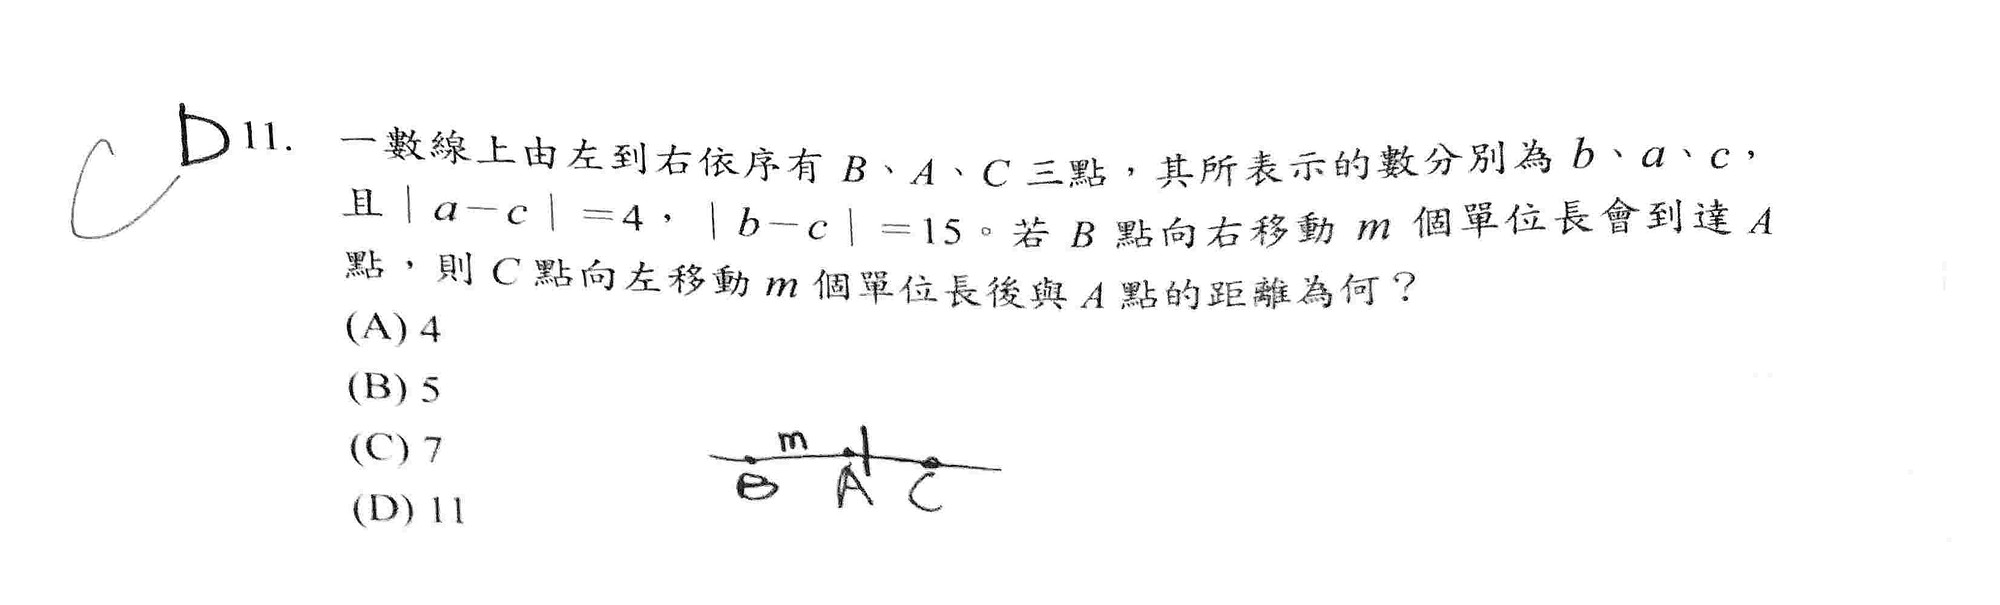 C D 11. 一數線上由左到右依序有 B、A、C 三點，其所表示的數分別為 b、a、c，
且｜a－c｜＝4，｜b－c｜＝15。若 B 點向右移動 m 個單位長會到達 A
點，則 C 點向左移動 m 個單位長後與 A 點的距離為何？
(A) 4
(B) 5
(C) 7
(D) 11
m
B A C